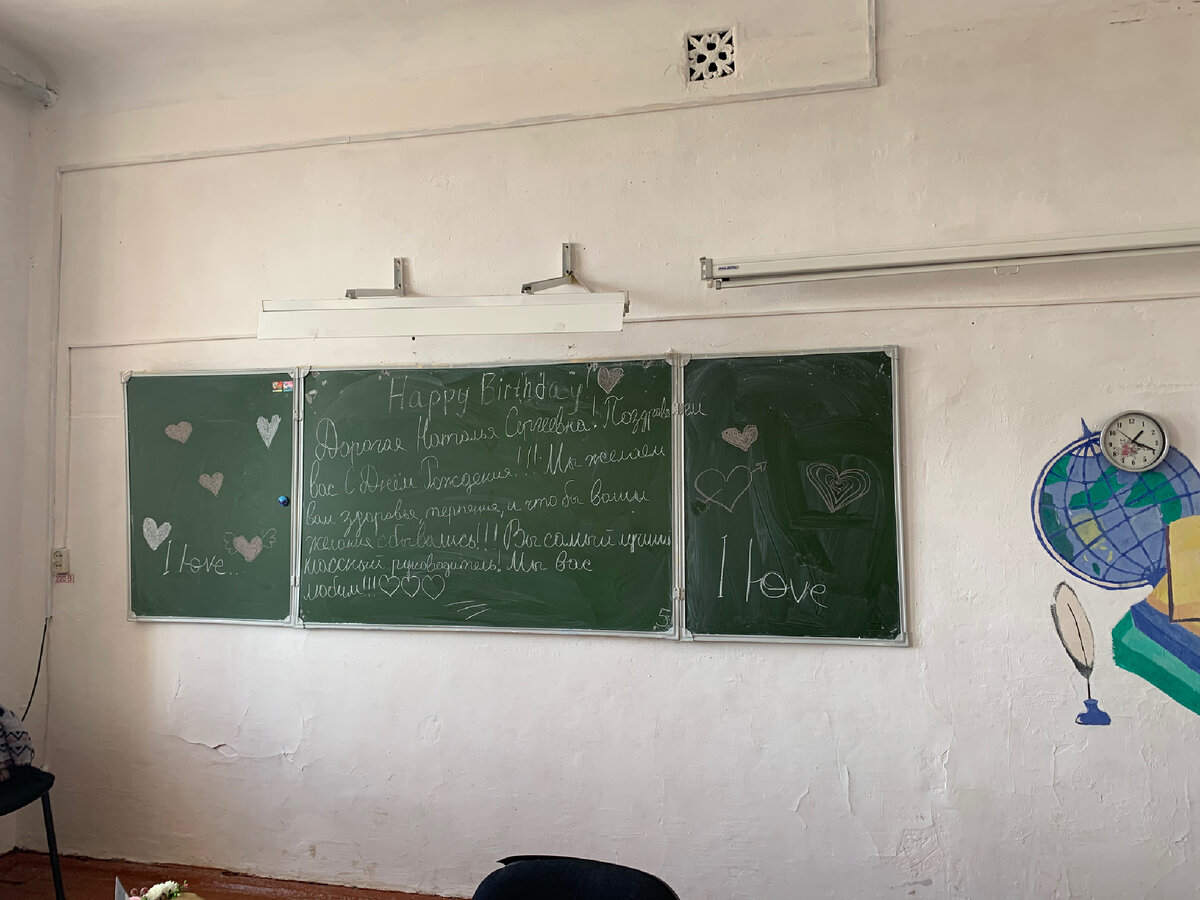 Happy Birthday!
Дорогая Наталья Сергеевна! Поздравляем
вас С Днём Рождения!!! Мы желаем
вам здоровья, терпения, и что бы ваши
желания сбывались!!! Вы самый лучший
классный руководитель! Мы вас
любим!!!
5
I love...
I love
220 В
12